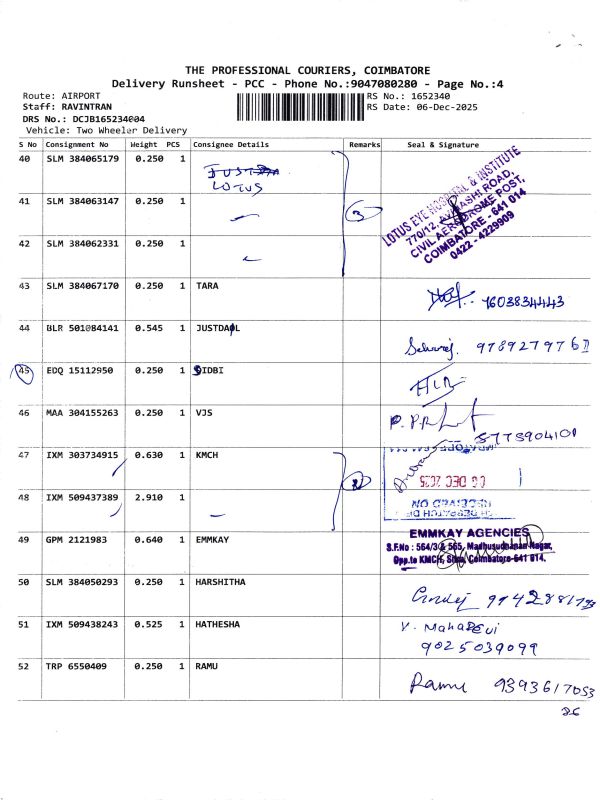 THE PROFESSIONAL COURIERS, COIMBATORE
Delivery Runsheet - PCC - Phone No.:9047080280 - Page No.:4
Route: AIRPORT
Staff: RAVINTRAN
DRS No.: DCJB165234004
Vehicle: Two Wheeler Delivery
RS No.: 1652340
RS Date: 06-Dec-2025
S No Consignment No Weight PCS Consignee Details Remarks Seal & Signature
40 SLM 384065179 0.250 1 LOTUS
41 SLM 384063147 0.250 1
3
42 SLM 384062331 0.250 1
LOTUS EYE HOSPITAL & INSTITUTE
770/12, AVINASHI ROAD,
CIVIL AERODROME POST,
COIMBATORE - 641 014
0422 - 4229909
43 SLM 384067170 0.250 1 TARA 1603834443
44 BLR 501084141 0.545 1 JUSTDAIL
45 EDQ 15112950 0.250 1 SIDBI
46 MAA 304155263 0.250 1 VJS
47 IXM 303734915 0.630 1 KMCH
2
06 DEC 2025
RECEIVED ON
48 IXM 509437389 2.910 1
49 GPM 2121983 0.640 1 EMMKAY
EMMKAY AGENCIES
S.F.No : 564/3& 565, Madhusudhanan Nagar,
Opp.to KMCH, Coimbatore-641 014.
50 SLM 384050293 0.250 1 HARSHITHA
51 IXM 509438243 0.525 1 HATHESHA V. MAHADEVI
9025039099
52 TRP 6550409 0.250 1 RAMU Ramu 9393617053
26